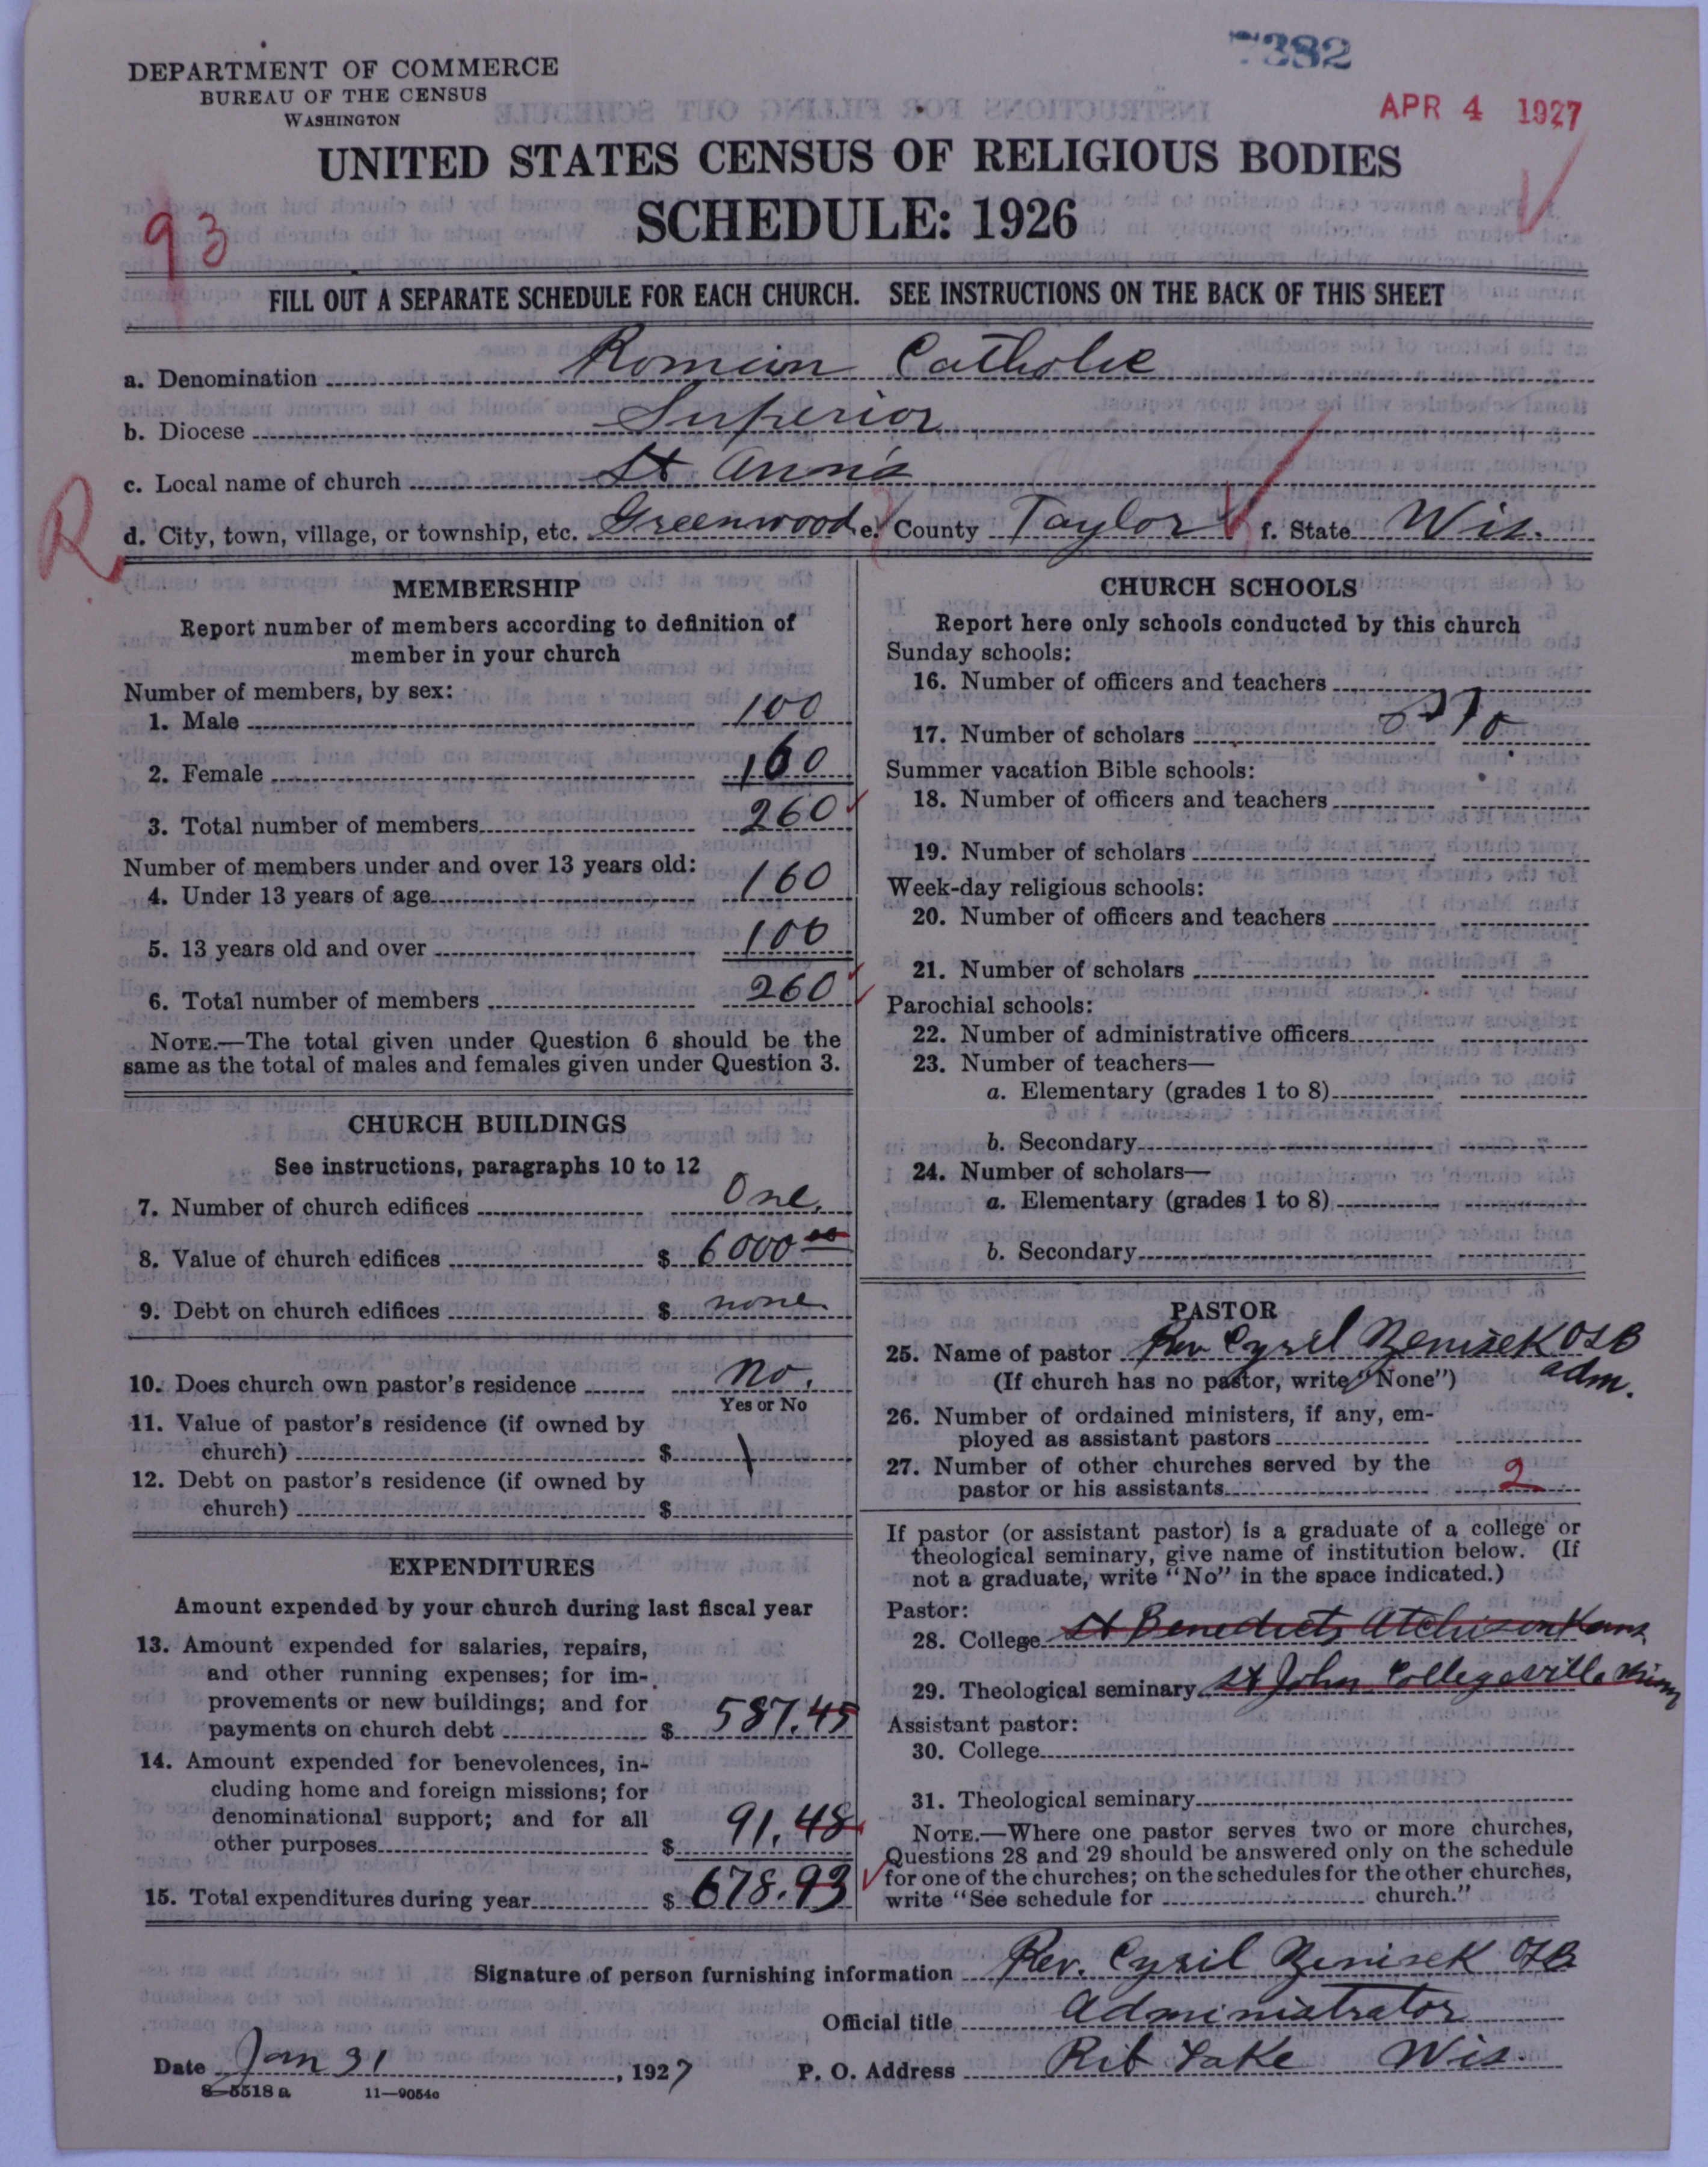 DEPARTMENT OF COMMERCE
BUREAU OF THE CENSUS
WASHINGTON
7382
APR 4 1927
UNITED STATES CENSUS OF RELIGIOUS BODIES
SCHEDULE: 1926
93
FILL OUT A SEPARATE SCHEDULE FOR EACH CHURCH. SEE INSTRUCTIONS ON THE BACK OF THIS SHEET
a. Denomination Roman Catholic
b. Diocese Superior
c. Local name of church St Ann's
R
d. City, town, village, or township, etc. Greenwood e. County Taylor f. State Wis.
MEMBERSHIP
Report number of members according to definition of
member in your church
Number of members, by sex:
1. Male 100
2. Female 160
3. Total number of members 260
Number of members under and over 13 years old:
4. Under 13 years of age 160
5. 13 years old and over 100
6. Total number of members 260
NOTE.—The total given under Question 6 should be the
same as the total of males and females given under Question 3.
CHURCH BUILDINGS
See instructions, paragraphs 10 to 12
7. Number of church edifices One.
8. Value of church edifices $ 6000 00
9. Debt on church edifices $ none
10. Does church own pastor's residence no.
Yes or No
11. Value of pastor's residence (if owned by
church) $
12. Debt on pastor's residence (if owned by
church) $
EXPENDITURES
Amount expended by your church during last fiscal year
13. Amount expended for salaries, repairs,
and other running expenses; for im-
provements or new buildings; and for
payments on church debt $ 587.45
14. Amount expended for benevolences, in-
cluding home and foreign missions; for
denominational support; and for all
other purposes $ 91.48
15. Total expenditures during year $ 678.93
CHURCH SCHOOLS
Report here only schools conducted by this church
Sunday schools:
16. Number of officers and teachers
17. Number of scholars
Summer vacation Bible schools:
18. Number of officers and teachers
19. Number of scholars
Week-day religious schools:
20. Number of officers and teachers
21. Number of scholars
Parochial schools:
22. Number of administrative officers
23. Number of teachers—
a. Elementary (grades 1 to 8)
b. Secondary
24. Number of scholars—
a. Elementary (grades 1 to 8)
b. Secondary
PASTOR
25. Name of pastor Rev Cyril Zenisek OSB
adm.
(If church has no pastor, write "None")
26. Number of ordained ministers, if any, em-
ployed as assistant pastors
27. Number of other churches served by the
pastor or his assistants 2
If pastor (or assistant pastor) is a graduate of a college or
theological seminary, give name of institution below. (If
not a graduate, write "No" in the space indicated.)
Pastor:
28. College St Benedicts Atchison Kans
29. Theological seminary St John Collegeville Minn
Assistant pastor:
30. College
31. Theological seminary
NOTE.—Where one pastor serves two or more churches,
Questions 28 and 29 should be answered only on the schedule
for one of the churches; on the schedules for the other churches,
write "See schedule for church."
Signature of person furnishing information Rev. Cyril Zenisek OSB
Official title Administrator
Date Jan 31, 1927 P. O. Address Rib Lake Wis.
8-5518 a 11—9054c